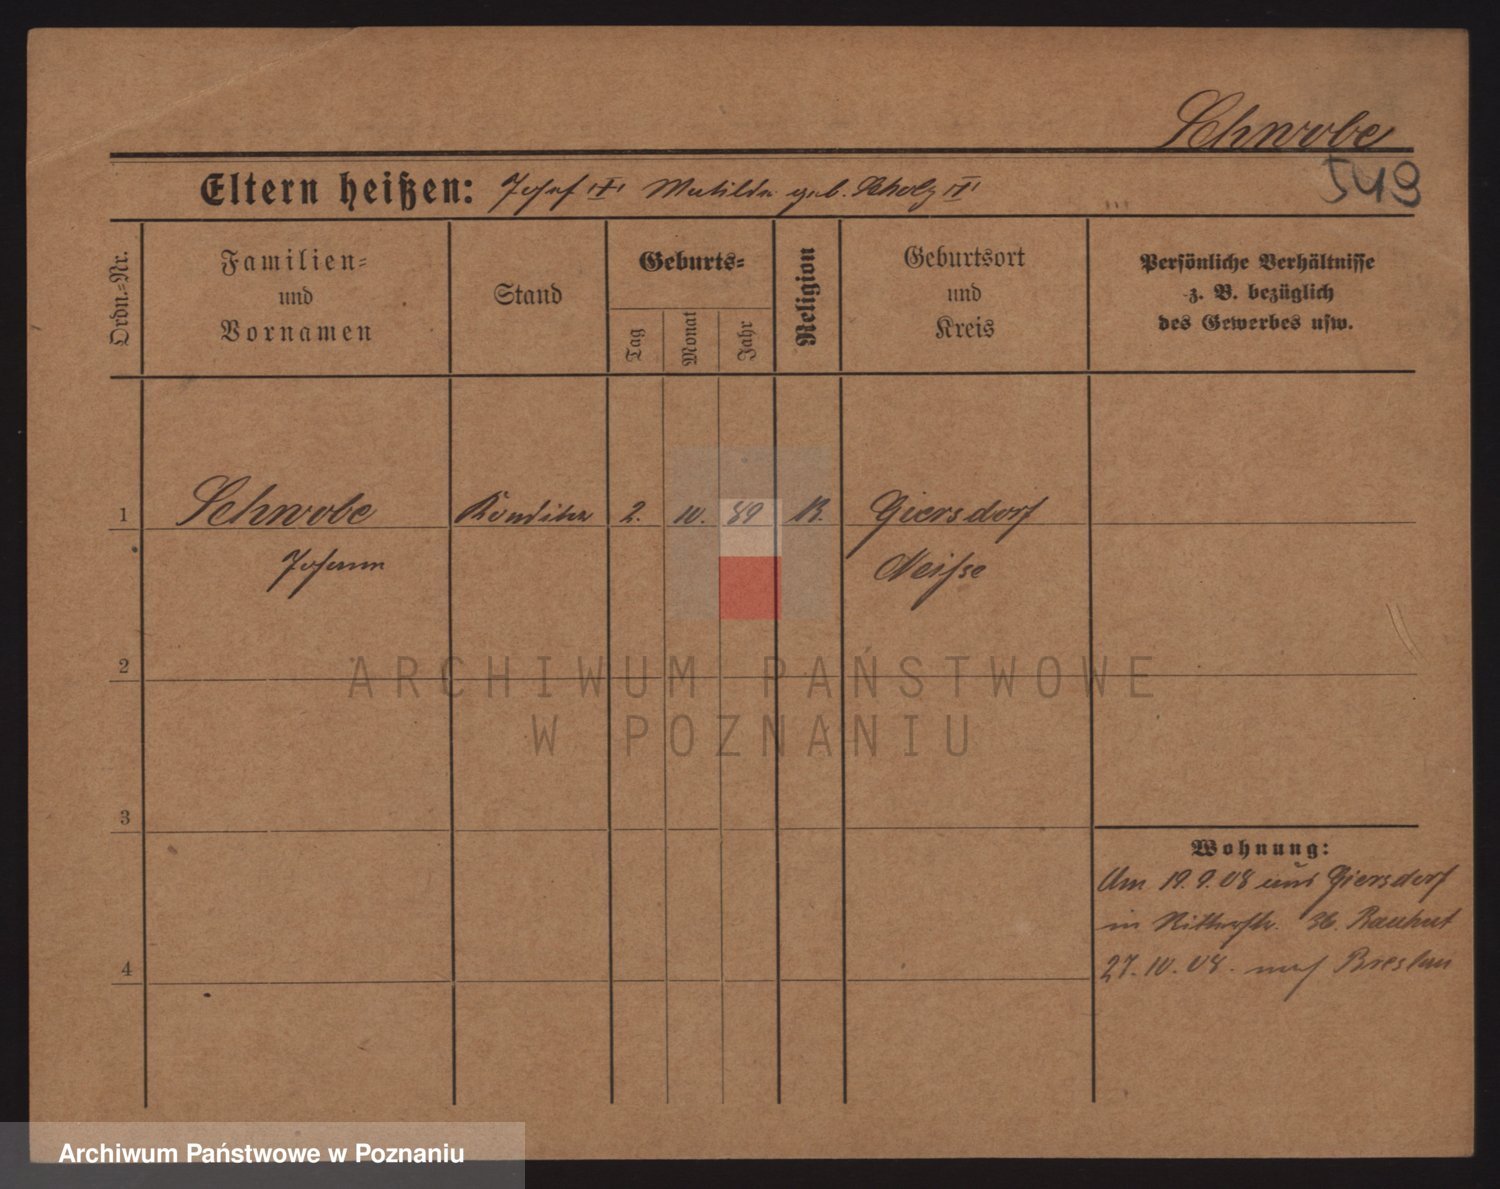 Schwobe
549
Eltern heißen: Josef "†" Matilde geb. Scholz "†"
Ordn.=Nr.
Familien=
und
Vornamen
Stand
Geburts=
Tag
Monat
Jahr
Religion
Geburtsort
und
Kreis
Persönliche Verhältnisse
z. B. bezüglich
des Gewerbes usw.
1 Schwobe Konditor 2. 10. 89 K. Giersdorf
Johann Neisse
2
ARCHIWUM PAŃSTWOWE
W POZNANIU
3
Wohnung:
Am 19.9.08 aus Giersdorf
in Ritterstr. 36. Rauhut
27.10.08. nach Breslau
4
Archiwum Państwowe w Poznaniu